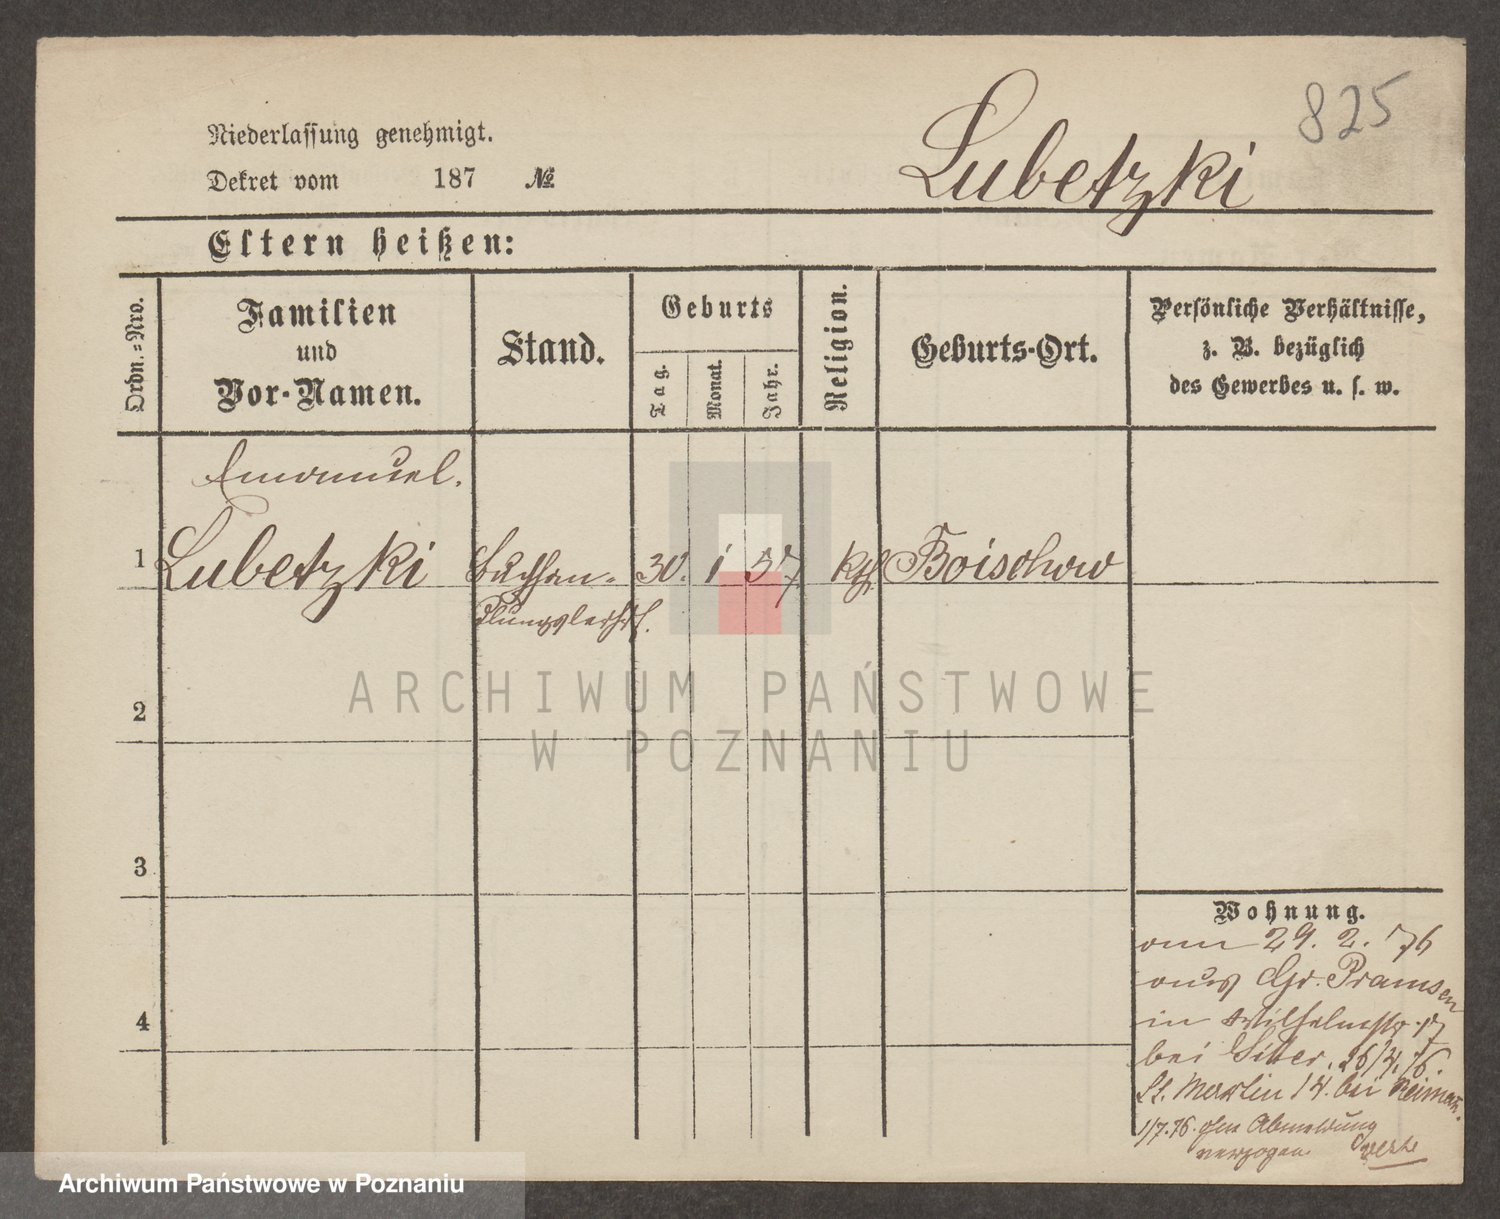 825
Niederlassung genehmigt.
Dekret vom 187 №
Lubetzki
Eltern heißen:
Ordn.=Nro.
Familien
und
Vor-Namen.
Stand.
Geburts
Tag.
Monat.
Jahr.
Religion.
Geburts-Ort.
Persönliche Verhältnisse,
z. B. bezüglich
des Gewerbes u. s. w.
Emanuel.
1 Lubetzki Buchhan- 30. 1 57 kth Boischow
dlungslehrl.
ARCHIWUM PAŃSTWOWE
W POZNANIU
2
3
4
Wohnung.
am 29. 2. 76
aus Gr. Pramsen
in Wilhelmstr. 17
bei 26/4. 76.
St. Martin 14. bei
1/7. 76. ohne Abmeldung
verzogen
Archiwum Państwowe w Poznaniu